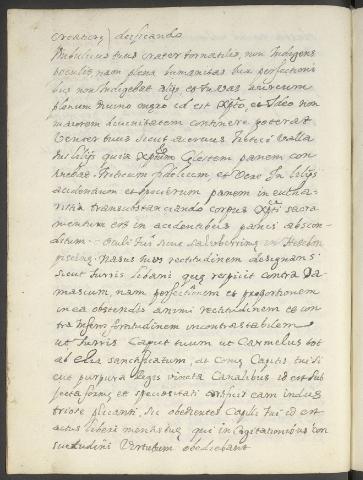 creationis) deificando
Umbilicus tuus crater tornatilis, non Indigens
poculis, nam plena humanitas tua perfectioni
bus non Indigebat alijs et tu vas aureum
plenum divino unguento id est Xpto, et Ideo non
maiorem divinitatem continere poterat
Venter tuus sicut acervus tritici valla
tus lilijs quia Xptum Celestem panem con
tinebas triticum fidelium, et vere In lilijs
accidentium et speciebus panem in eucha
ristia transubstanciando corpus Xpti sacra
mentum est in accidentibus panis abscon
ditum. Oculi tui sicut piscine in Hesebon
piscinę; nasus tuus rectitudinem designans
sicut turris libani quę respicit contra Da
mascum, nam perfectionem et proportionem
in ea ostendis animi rectitudinem et con
tra Infernum fortitudinem incontrastabilem
ut turris Caput tuum ut Carmelus est
ab Elia sanctificatum, ac comę Capitis tui si
cut purpura Regis vincta Canalibus id est sub
jecta formę et speciositati conficit eam indus
triose plicanti, sic obedientes Capilli tui id est
actus liberi mentis tuę qui in cogitationibus con
suetudini virtutum obediebant